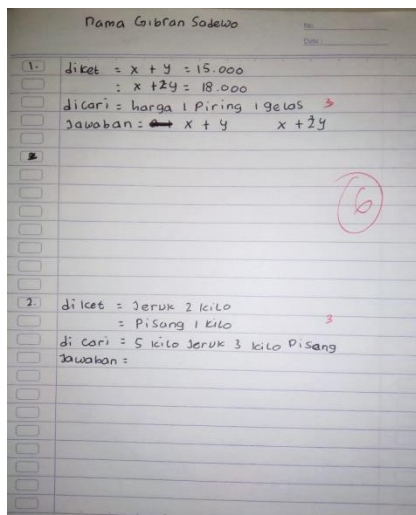 Nama Gibran Sadewo
No.
Date:
1. diket = x + y = 15.000
: x + 2y = 18.000
dicari = harga 1 Piring 1 gelas 3
Jawaban = x + y x + 2y
2
6
2. diket = Jeruk 2 kilo
= Pisang 1 kilo 3
di cari = 5 kilo Jeruk 3 kilo Pisang
Jawaban =